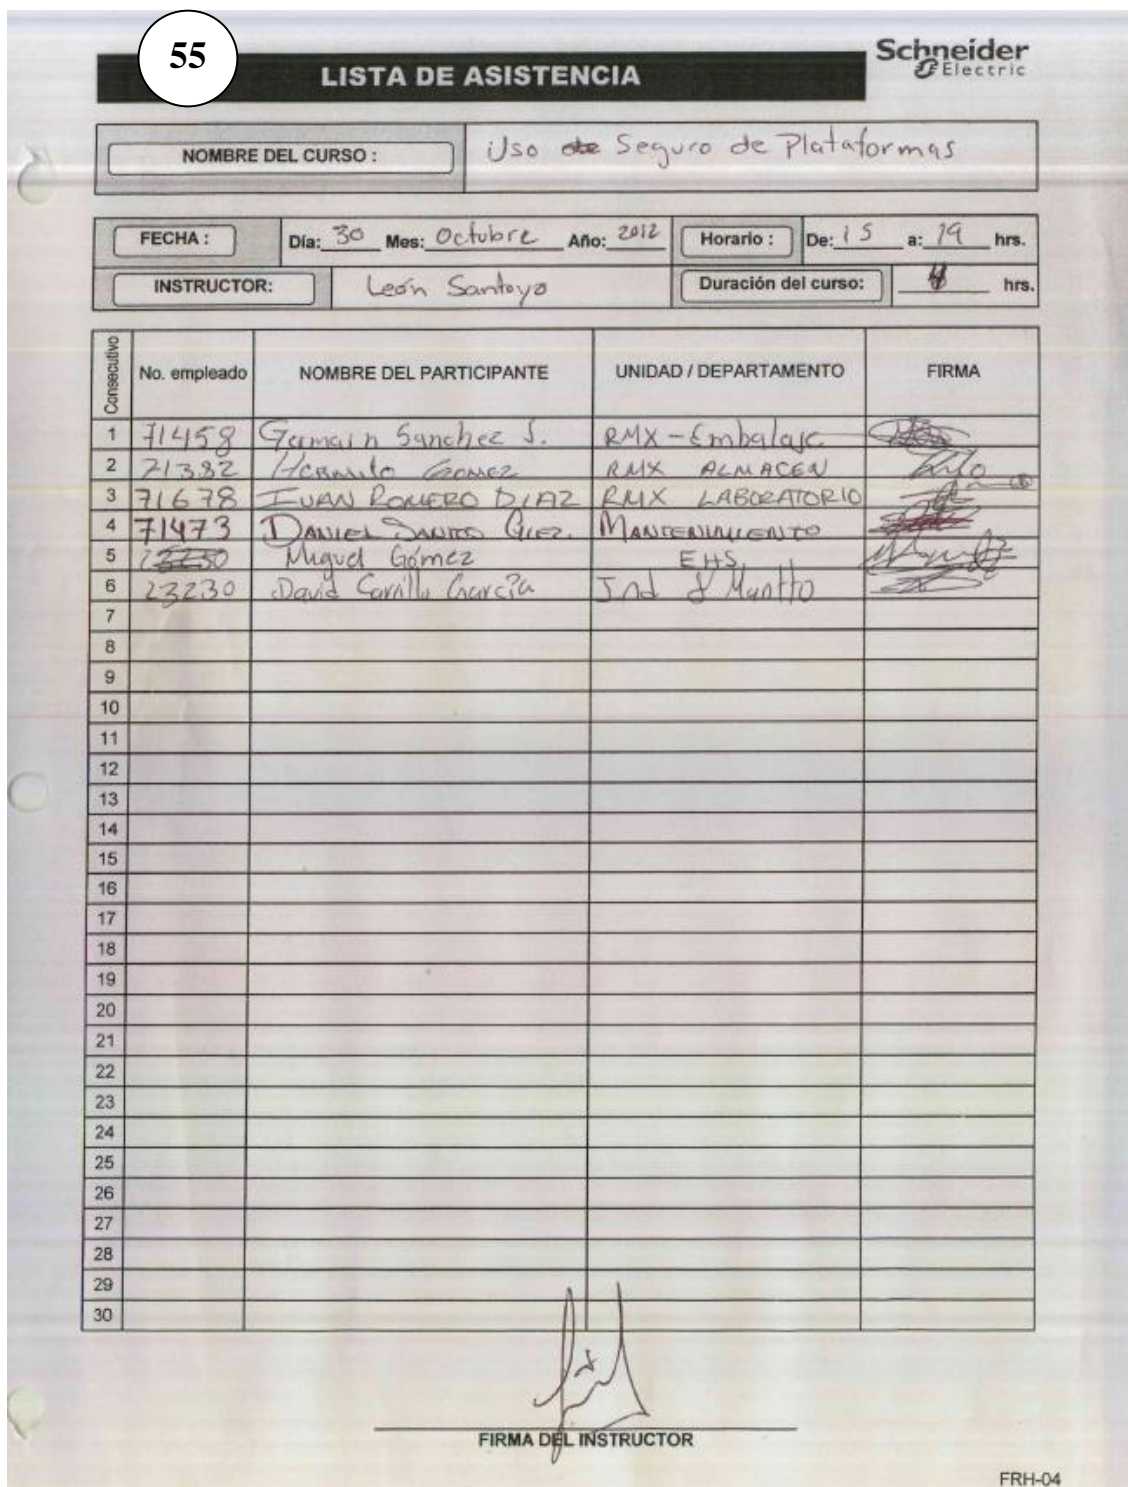 55
LISTA DE ASISTENCIA
Schneider
Electric
NOMBRE DEL CURSO : Uso Seguro de Plataformas
FECHA : Día: 30 Mes: Octubre Año: 2012 Horario : De: 15 a: 19 hrs.
INSTRUCTOR: León Santoyo Duración del curso: 4 hrs.
Consecutivo No. empleado NOMBRE DEL PARTICIPANTE UNIDAD / DEPARTAMENTO FIRMA
1 71458 Germain Sanchez J. RMX - Embalaje
2 71382 Gomez RMX ALMACEN
3 71678 IVAN ROMERO DIAZ RMX LABORATORIO
4 71473 DANIEL SANTOS MANTENIMIENTO
5 Miguel Gómez EHS
6 23230 David Carrillo García Ind & Mantto
7
8
9
10
11
12
13
14
15
16
17
18
19
20
21
22
23
24
25
26
27
28
29
30
FIRMA DEL INSTRUCTOR
FRH-04